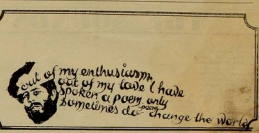 out of my enthusiasm,
out of my love I have
spoken a poem, only
sometimes do poems
change the world